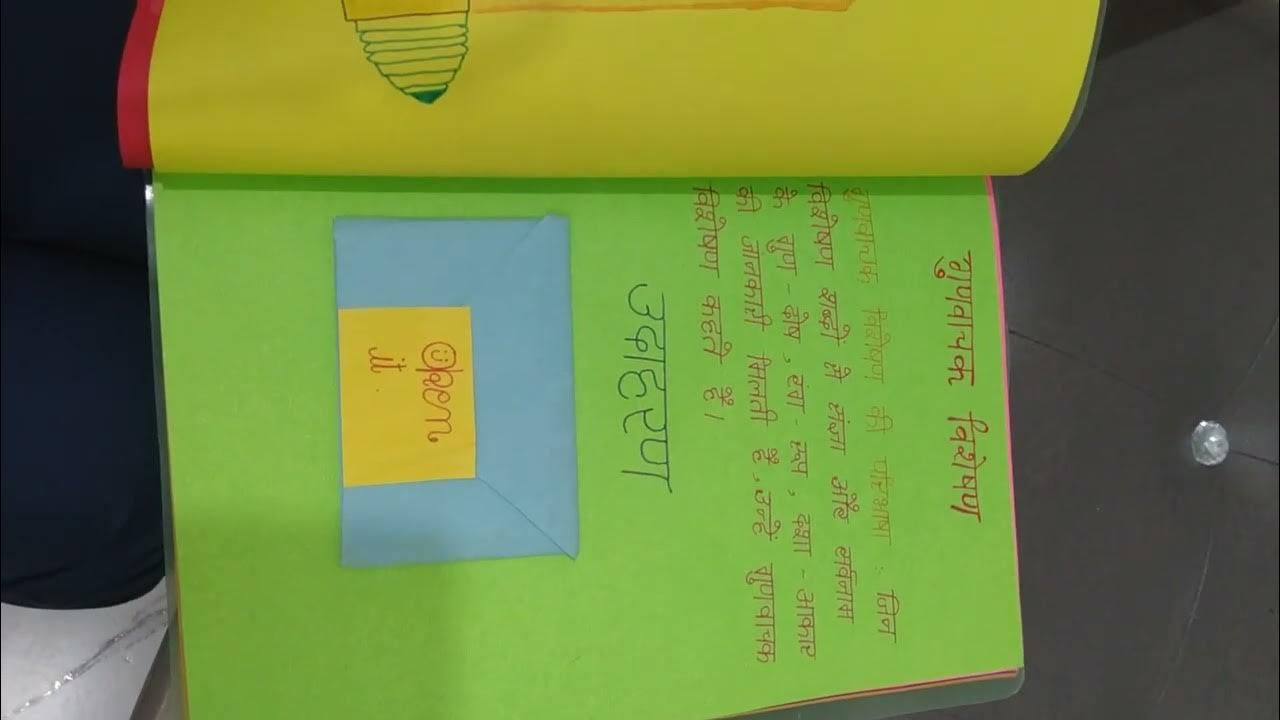 गुणवाचक विशेषण
गुणवाचक विशेषण की परिभाषा : जिन
विशेषण शब्दों से संज्ञा और सर्वनाम
के गुण - दोष , रंग - रूप , दशा - आकार
की जानकारी मिलती है , उन्हें गुणवाचक
विशेषण कहते है।
उदाहरण
Open
it.